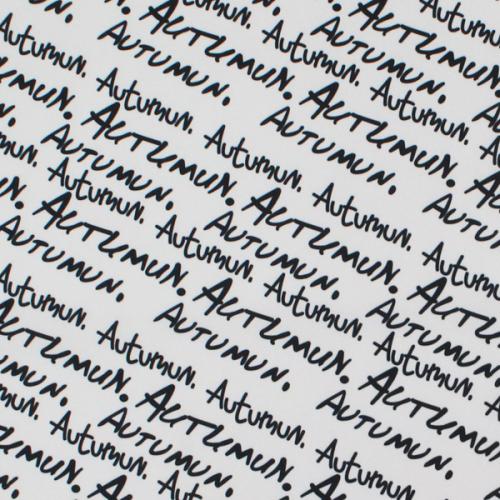 Autumun.
AUTUMUN. AUTUMUN.
AUTUMUN. AUTUMUN.
Autumun. Autumun. Autumun.
Autumun. Autumun. Autumun. Autumun.
AUTUMUN. AUTUMUN. AUTUMUN.
AUTUMUN. AUTUMUN. AUTUMUN.
Autumun. Autumun. Autumun.
AUTUMUN. AUTUMUN. AUTUMUN.
AUTUMUN. AUTUMUN. AUTUMUN.
Autumun. Autumun. Autumun.
AUTUMUN. AUTUMUN.
AUTUMUN.
Autumun.